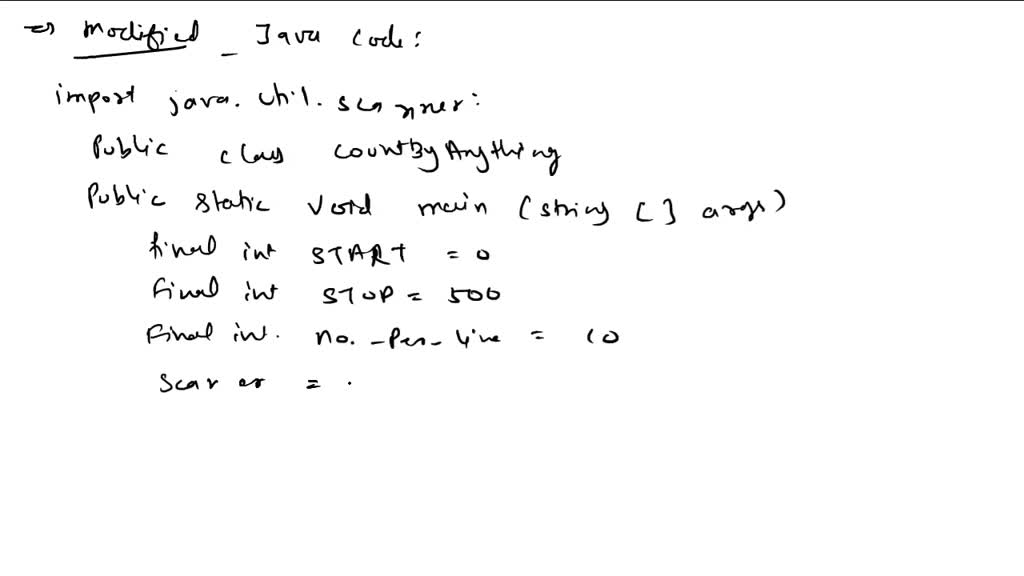 => Modified _ Java Code:
import java.util.scanner:
Public class CountByAnything
Public static void main (string [] args)
final int START = 0
Final int STOP = 500
Final int. no._Per_line = 10
Scar = .